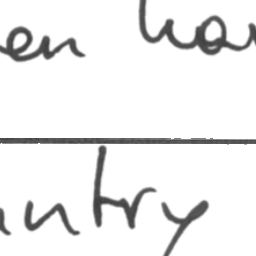 en hav
untry